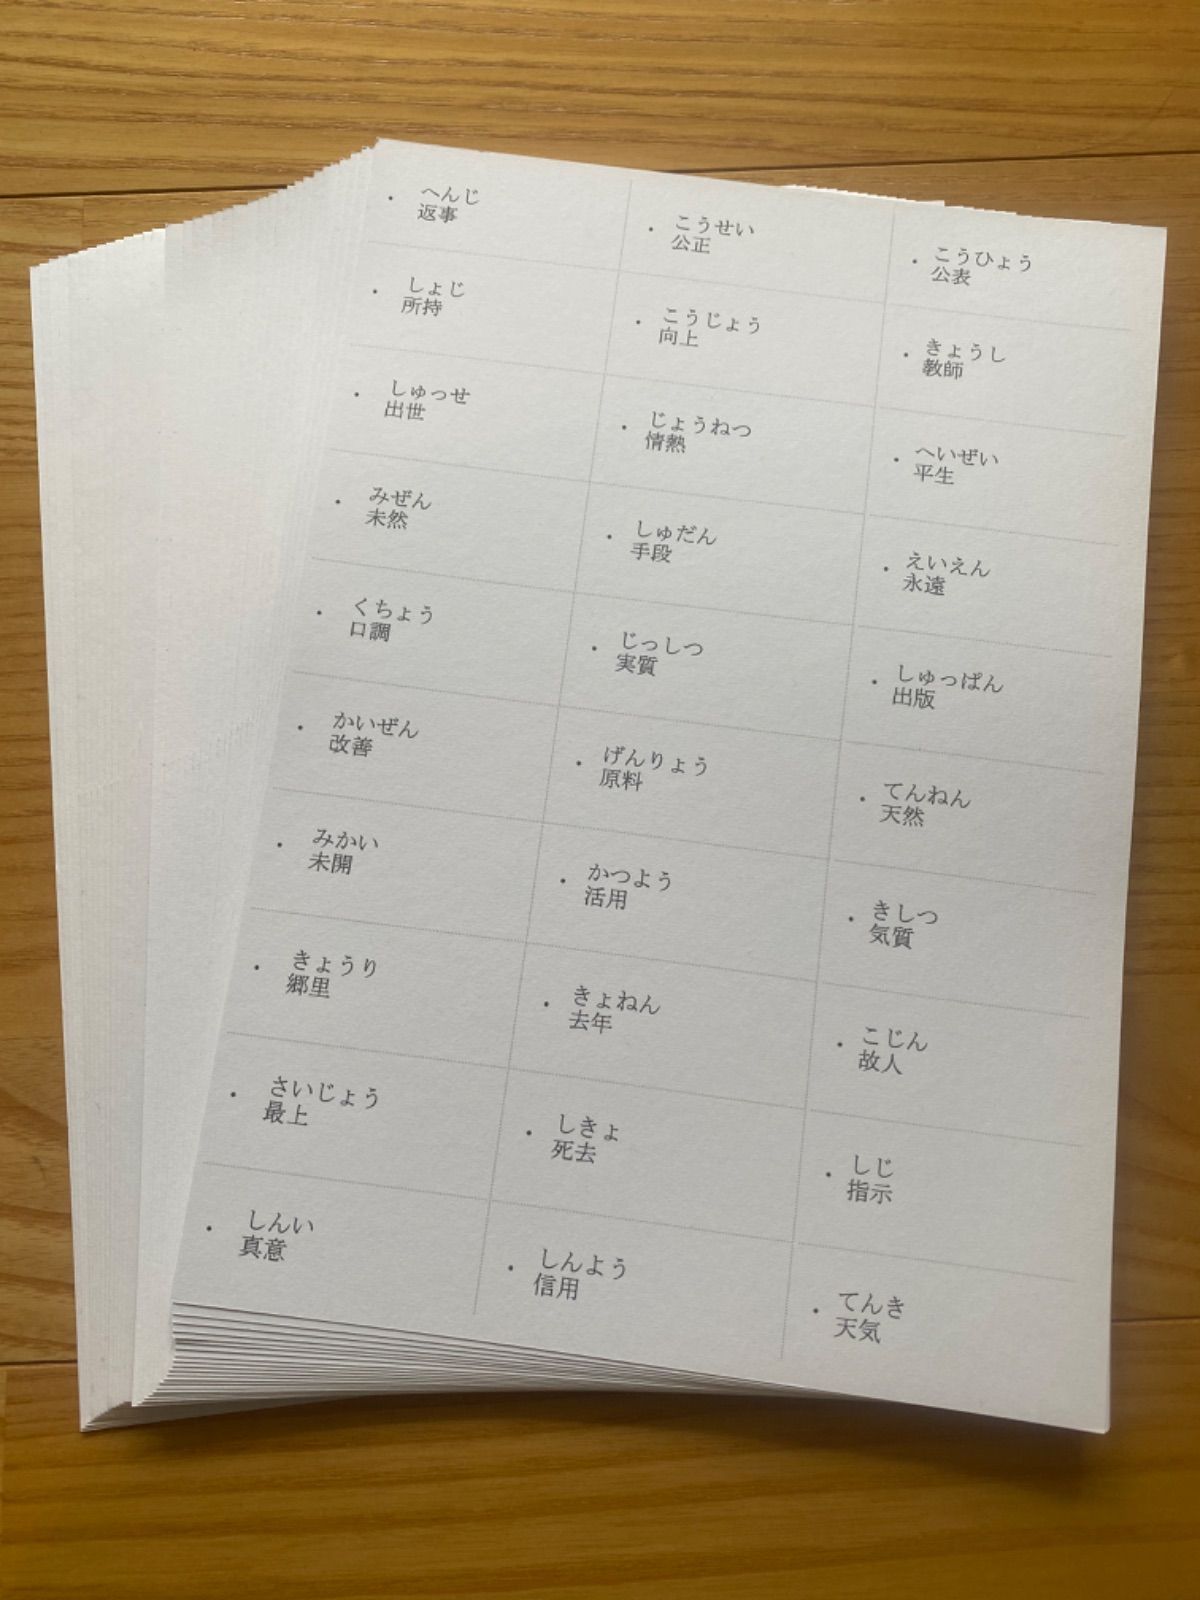 ・ へんじ
返事
・ こうせい
公正
・ こうひょう
公表
・ しょじ
所持
・ こうじょう
向上
・ きょうし
教師
・ しゅっせ
出世
・ じょうねつ
情熱
・ へいぜい
平生
・ みぜん
未然
・ しゅだん
手段
・ えいえん
永遠
・ くちょう
口調
・ じっしつ
実質
・ しゅっぱん
出版
・ かいぜん
改善
・ げんりょう
原料
・ てんねん
天然
・ みかい
未開
・ かつよう
活用
・ きしつ
気質
・ きょうり
郷里
・ きょねん
去年
・ こじん
故人
・ さいじょう
最上
・ しきょ
死去
・ しじ
指示
・ しんい
真意
・ しんよう
信用
・ てんき
天気